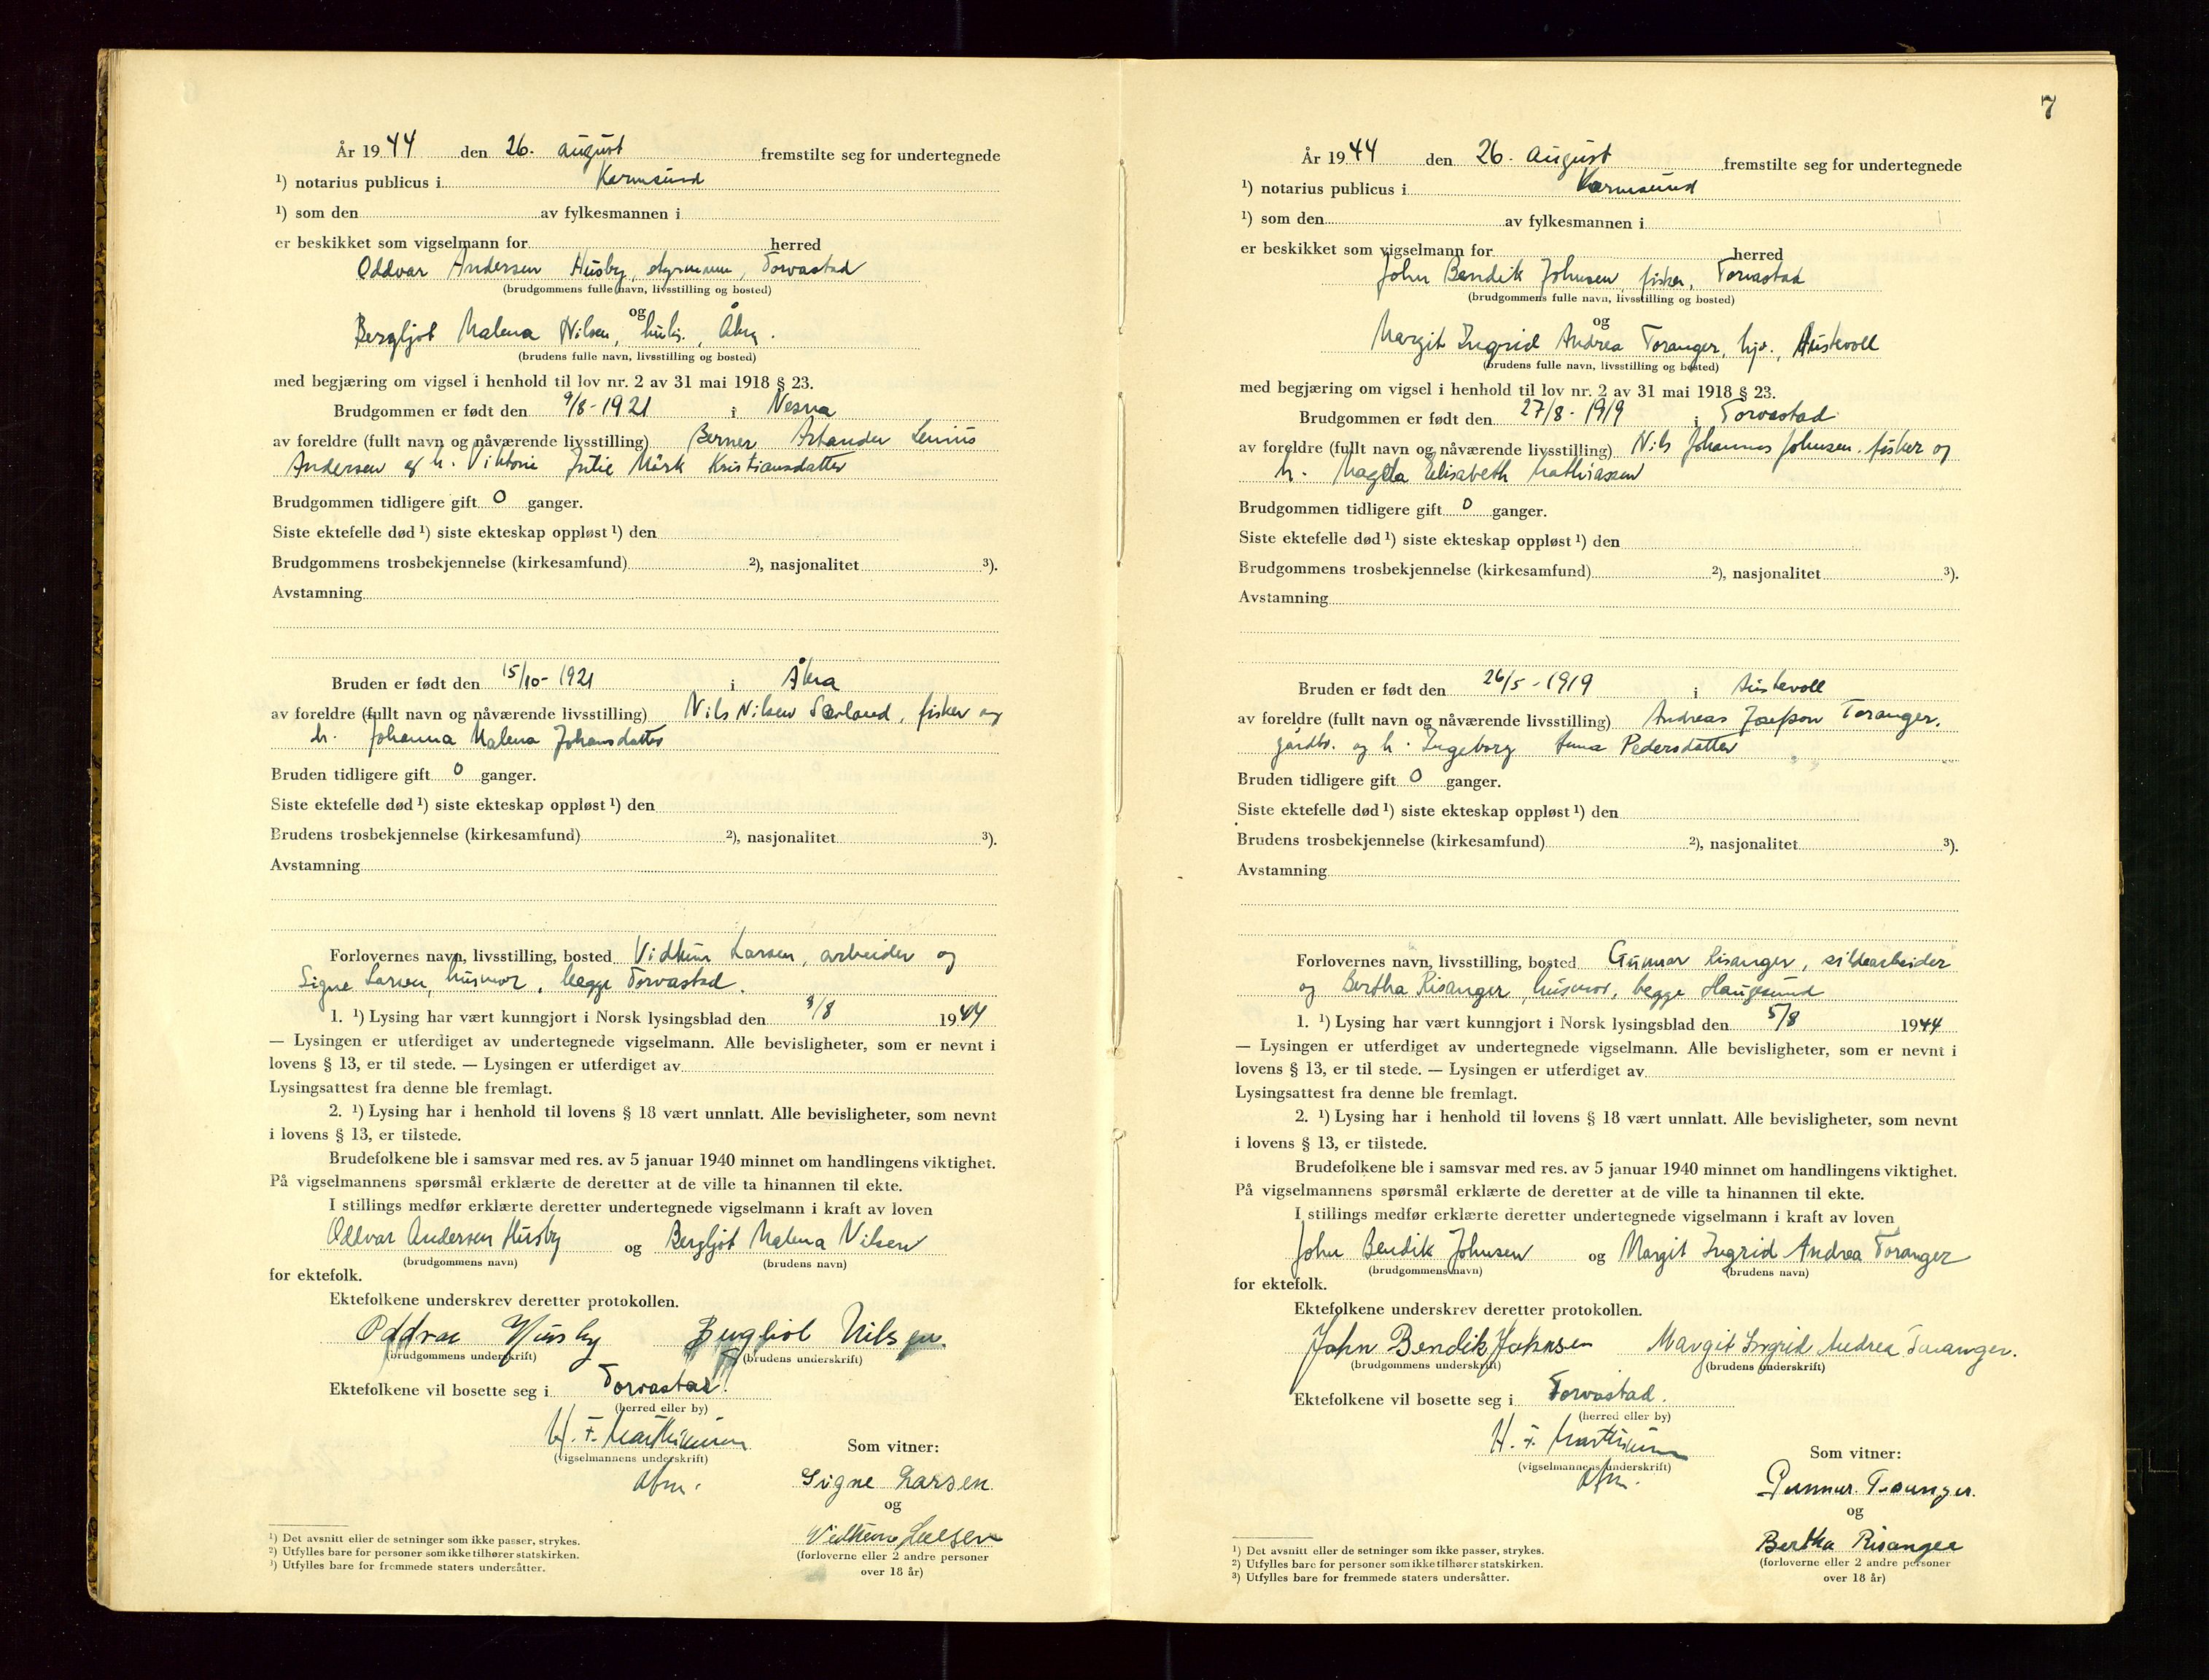 År 1944 den 26. august fremstilte seg for undertegnede
¹) notarius publicus i Karmsund
¹) som den av fylkesmannen i
er beskikket som vigselmann for herred
Oddvar Andersen Husby, styrmann, Torvastad
(brudgommens fulle navn, livsstilling og bosted)
og
Bergljot Malena Nilsen, hush., Åkra.
(brudens fulle navn, livsstilling og bosted)
med begjæring om vigsel i henhold til lov nr. 2 av 31 mai 1918 § 23.
Brudgommen er født den 9/8 - 1921 i Nesna
av foreldre (fullt navn og nåværende livsstilling) Berner Astander Lenius
Andersen og h. Viktorie Julie Mørk Kristiansdatter
Brudgommen tidligere gift 0 ganger.
Siste ektefelle død ¹) siste ekteskap oppløst ¹) den
Brudgommens trosbekjennelse (kirkesamfund) ²), nasjonalitet ³).
Avstamning
Bruden er født den 15/10 - 1921 i Åkra
av foreldre (fullt navn og nåværende livsstilling) Nils Nilsen Sørland, fisker og
h. Johanna Malena Johansdatter
Bruden tidligere gift 0 ganger.
Siste ektefelle død ¹) siste ekteskap oppløst ¹) den
Brudens trosbekjennelse (kirkesamfund) ²), nasjonalitet ³).
Avstamning
Forlovernes navn, livsstilling, bosted Vidkun Larsen, arbeider og
Signe Larsen, husmor, begge Torvastad.
1. ¹) Lysing har vært kunngjort i Norsk lysingsblad den 3/8 1944
— Lysingen er utferdiget av undertegnede vigselmann. Alle bevisligheter, som er nevnt i
lovens § 13, er til stede. — Lysingen er utferdiget av
Lysingsattest fra denne ble fremlagt.
2. ¹) Lysing har i henhold til lovens § 18 vært unnlatt. Alle bevisligheter, som nevnt
i lovens § 13, er tilstede.
Brudefolkene ble i samsvar med res. av 5 januar 1940 minnet om handlingens viktighet.
På vigselmannens spørsmål erklærte de deretter at de ville ta hinannen til ekte.
I stillings medfør erklærte deretter undertegnede vigselmann i kraft av loven
Oddvar Andersen Husby og Bergljot Malena Nilsen
(brudgommens navn) (brudens navn)
for ektefolk.
Ektefolkene underskrev deretter protokollen.
Oddvar Husby Bergliot Nilsen
(brudgommens underskrift) (brudens underskrift)
Ektefolkene vil bosette seg i Torvastad.
(herred eller by)
H. F. Marthinussen
(vigselmannens underskrift)
Som vitner:
Signe Larsen
og
Vidkun Larsen
(forloverne eller 2 andre personer
over 18 år)
¹) Det avsnitt eller de setninger som ikke passer, strykes.
²) Utfylles bare for personer som ikke tilhører statskirken.
³) Utfylles bare for fremmede staters undersåtter.
7
År 1944 den 26. august fremstilte seg for undertegnede
¹) notarius publicus i Karmsund
¹) som den av fylkesmannen i
er beskikket som vigselmann for herred
John Bendik Johnsen, fisker, Torvastad
(brudgommens fulle navn, livsstilling og bosted)
og
Margit Ingrid Andrea Toranger, hjv., Austevoll
(brudens fulle navn, livsstilling og bosted)
med begjæring om vigsel i henhold til lov nr. 2 av 31 mai 1918 § 23.
Brudgommen er født den 27/8 - 1919 i Torvastad
av foreldre (fullt navn og nåværende livsstilling) Nils Johannes Johnsen, fisker og
h. Magda Elisabeth Mathiassen
Brudgommen tidligere gift 0 ganger.
Siste ektefelle død ¹) siste ekteskap oppløst ¹) den
Brudgommens trosbekjennelse (kirkesamfund) ²), nasjonalitet ³).
Avstamning
Bruden er født den 26/5 - 1919 i Austevoll
av foreldre (fullt navn og nåværende livsstilling) Andreas Josefson Toranger,
gårdbr. og h. Ingeborg Anna Pedersdatter
Bruden tidligere gift 0 ganger.
Siste ektefelle død ¹) siste ekteskap oppløst ¹) den
Brudens trosbekjennelse (kirkesamfund) ²), nasjonalitet ³).
Avstamning
Forlovernes navn, livsstilling, bosted Gunnar Risanger, sildearbeider
og Bertha Risanger, husmor, begge Haugesund
1. ¹) Lysing har vært kunngjort i Norsk lysingsblad den 5/8 1944
— Lysingen er utferdiget av undertegnede vigselmann. Alle bevisligheter, som er nevnt i
lovens § 13, er til stede. — Lysingen er utferdiget av
Lysingsattest fra denne ble fremlagt.
2. ¹) Lysing har i henhold til lovens § 18 vært unnlatt. Alle bevisligheter, som nevnt
i lovens § 13, er tilstede.
Brudefolkene ble i samsvar med res. av 5 januar 1940 minnet om handlingens viktighet.
På vigselmannens spørsmål erklærte de deretter at de ville ta hinannen til ekte.
I stillings medfør erklærte deretter undertegnede vigselmann i kraft av loven
John Bendik Johnsen og Margit Ingrid Andrea Toranger
(brudgommens navn) (brudens navn)
for ektefolk.
Ektefolkene underskrev deretter protokollen.
John Bendik Johnsen Margit Ingrid Andrea Toranger.
(brudgommens underskrift) (brudens underskrift)
Ektefolkene vil bosette seg i Torvastad.
(herred eller by)
H. F. Marthinussen
(vigselmannens underskrift)
Som vitner:
Gunnar Risanger.
og
Bertha Risanger
(forloverne eller 2 andre personer
over 18 år)
¹) Det avsnitt eller de setninger som ikke passer, strykes.
²) Utfylles bare for personer som ikke tilhører statskirken.
³) Utfylles bare for fremmede staters undersåtter.